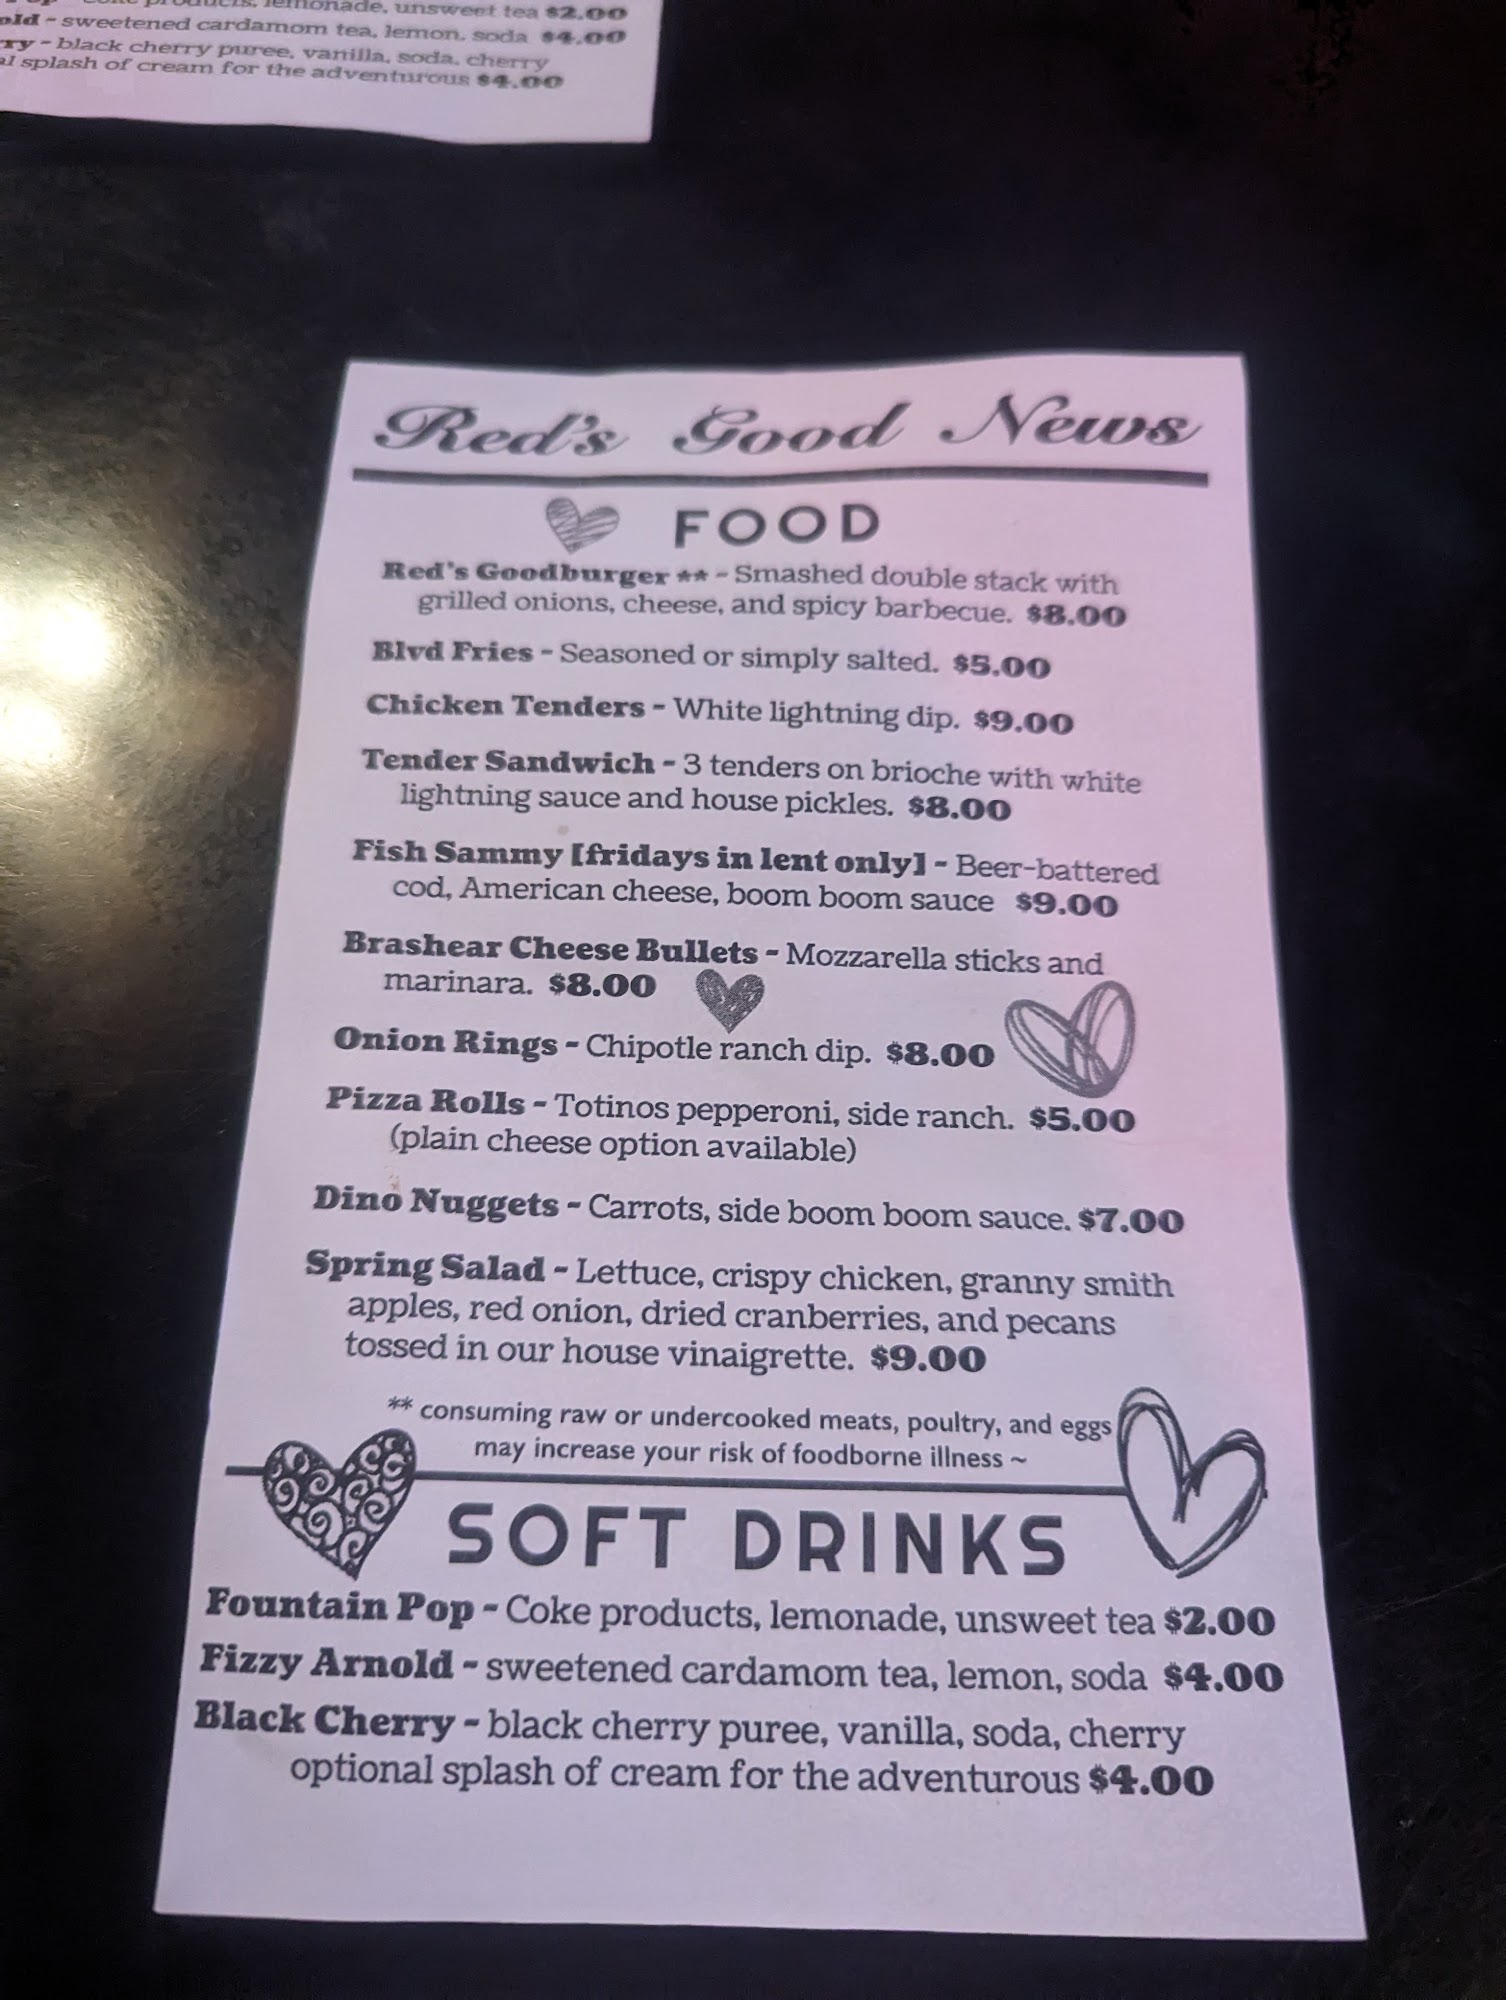 products, lemonade, unsweet tea $2.00
old - sweetened cardamom tea, lemon, soda $4.00
ry - black cherry puree, vanilla, soda, cherry
al splash of cream for the adventurous $4.00
Red's Good News
FOOD
Red's Goodburger ** - Smashed double stack with
grilled onions, cheese, and spicy barbecue. $8.00
Blvd Fries - Seasoned or simply salted. $5.00
Chicken Tenders - White lightning dip. $9.00
Tender Sandwich - 3 tenders on brioche with white
lightning sauce and house pickles. $8.00
Fish Sammy [fridays in lent only] - Beer-battered
cod, American cheese, boom boom sauce $9.00
Brashear Cheese Bullets - Mozzarella sticks and
marinara. $8.00
Onion Rings - Chipotle ranch dip. $8.00
Pizza Rolls - Totinos pepperoni, side ranch. $5.00
(plain cheese option available)
Dino Nuggets - Carrots, side boom boom sauce. $7.00
Spring Salad - Lettuce, crispy chicken, granny smith
apples, red onion, dried cranberries, and pecans
tossed in our house vinaigrette. $9.00
** consuming raw or undercooked meats, poultry, and eggs
may increase your risk of foodborne illness ~
SOFT DRINKS
Fountain Pop - Coke products, lemonade, unsweet tea $2.00
Fizzy Arnold - sweetened cardamom tea, lemon, soda $4.00
Black Cherry - black cherry puree, vanilla, soda, cherry
optional splash of cream for the adventurous $4.00